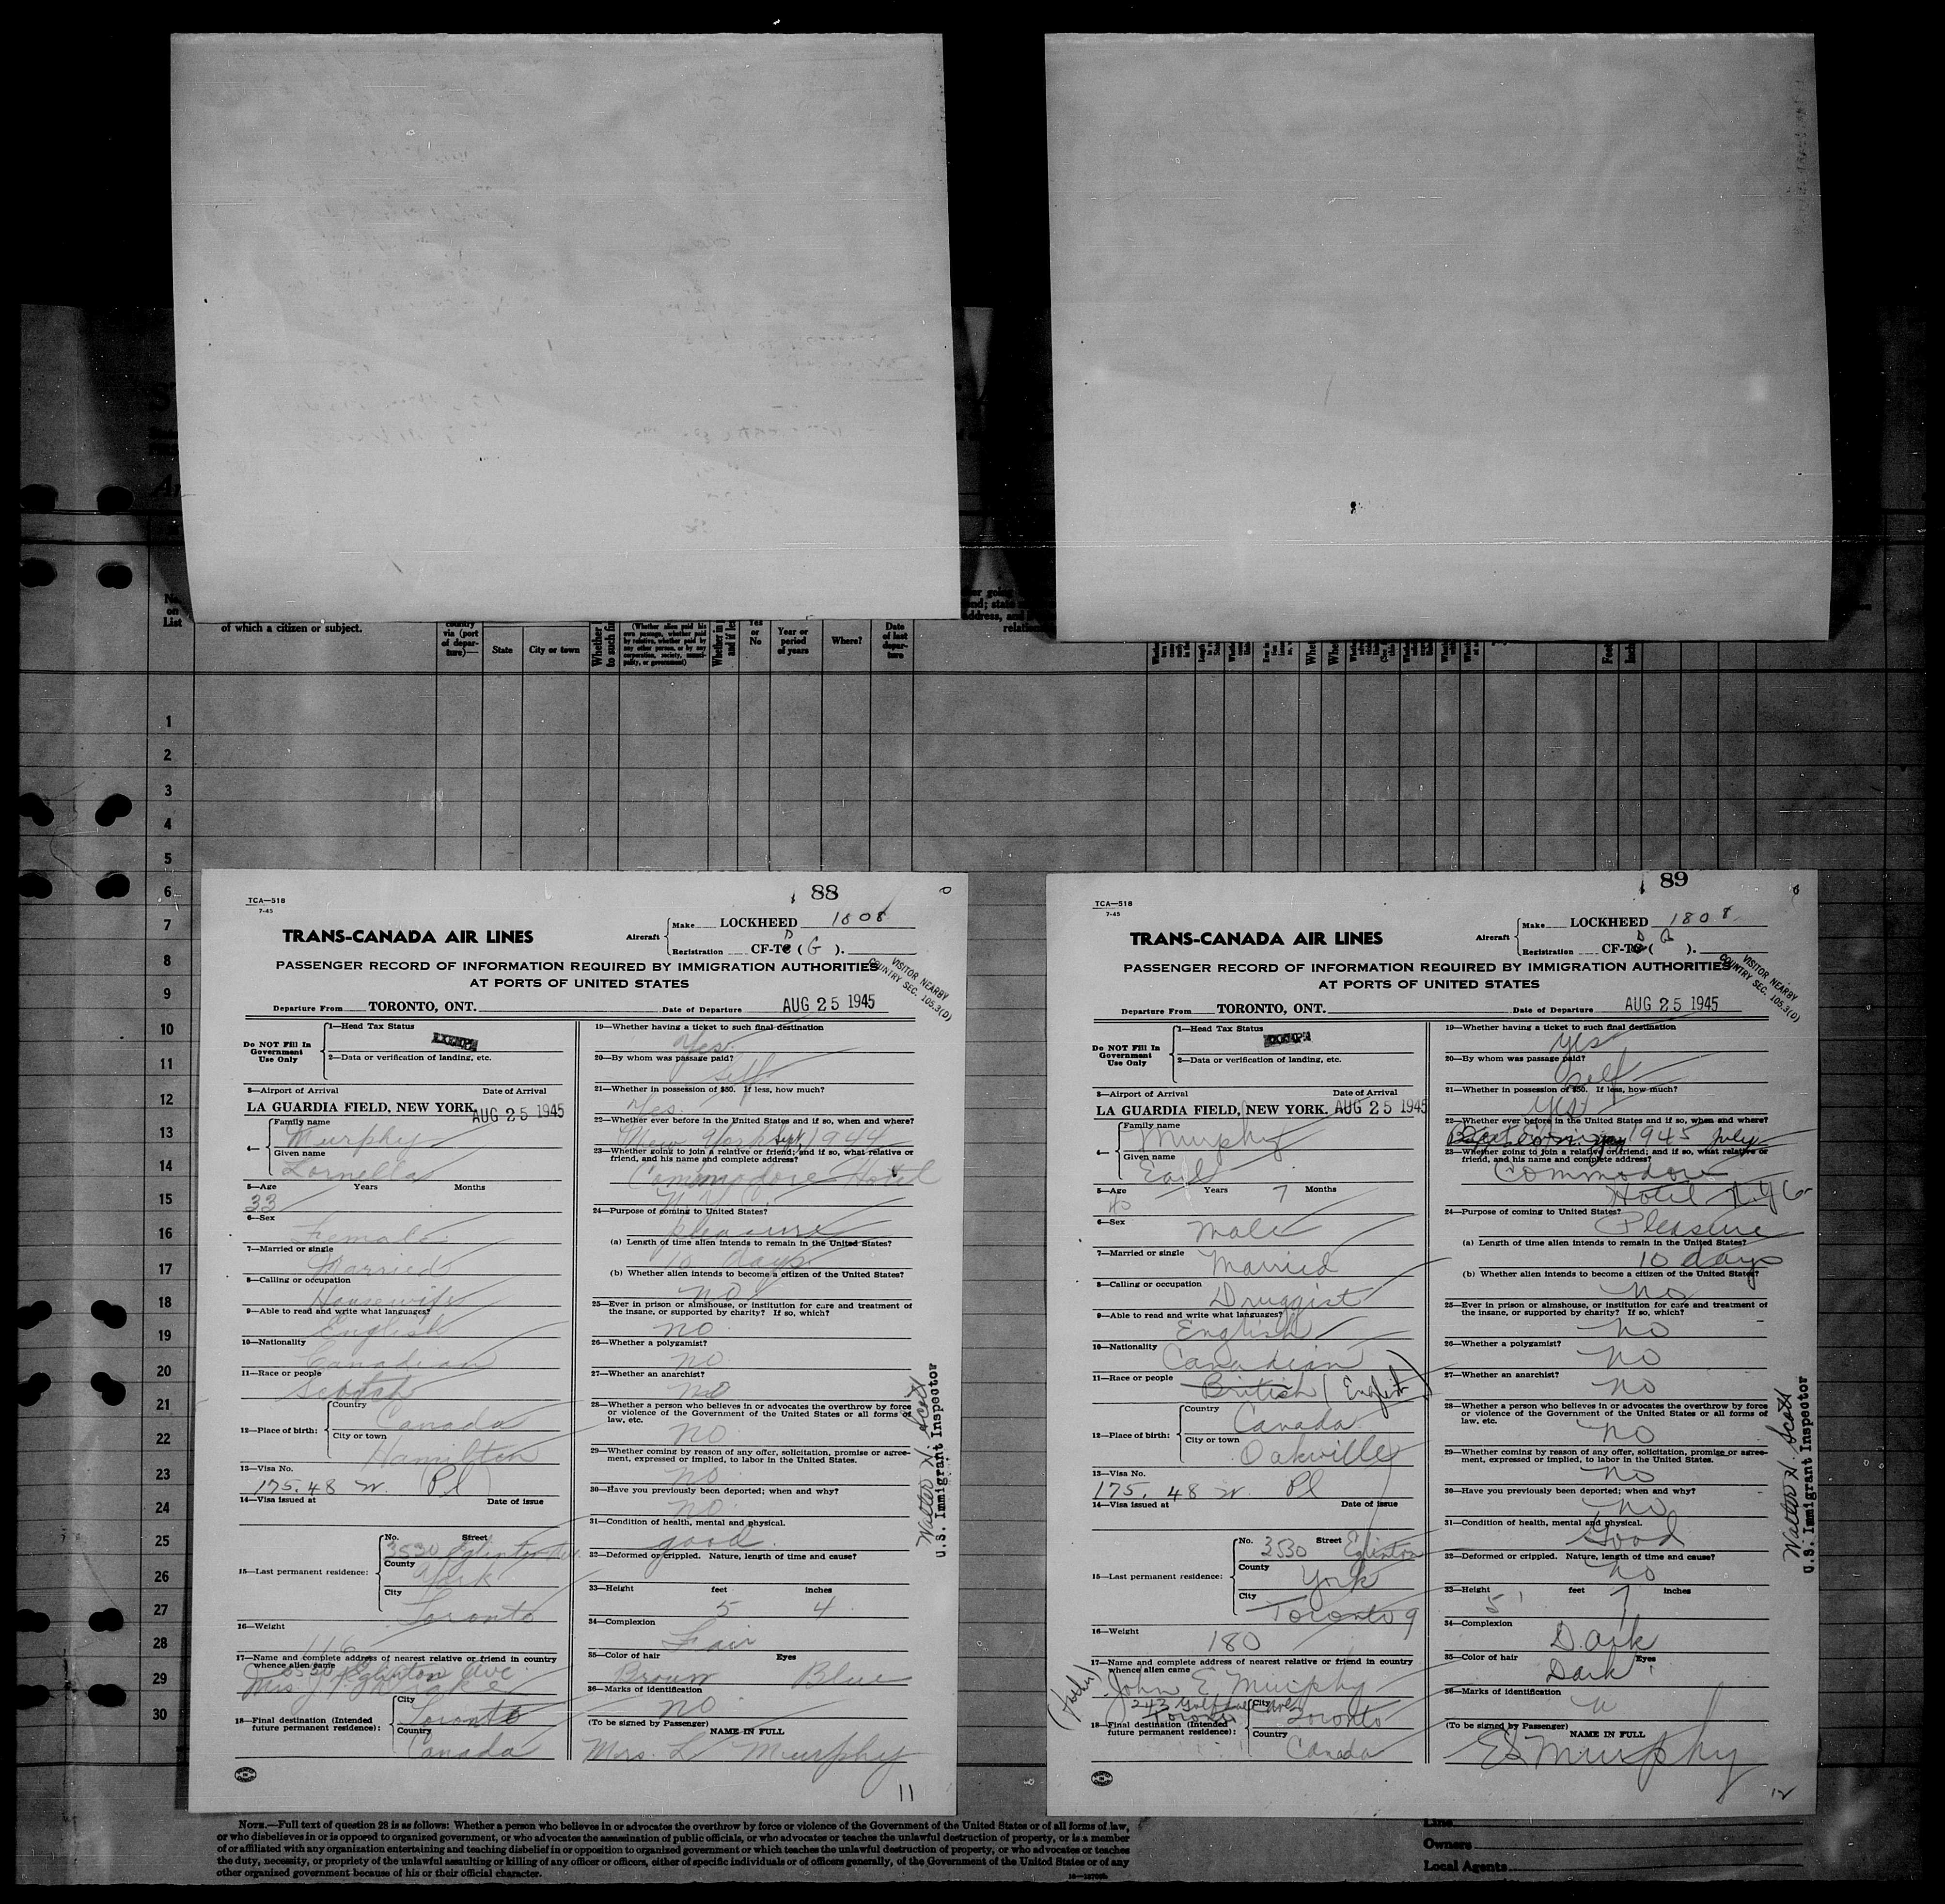 No. on List
of which a citizen or subject.
country via (port of departure)—
State
City or town
(Whether alien paid his own passage, whether paid by relative, whether paid by any other person, or by any corporation, society, municipality, or government)
Yes or No
Year or period of years
Where?
Date of last departure
Feet
1
2
3
4
5
6
7
8
9
10
11
12
13
14
15
16
17
18
19
20
21
22
23
24
25
26
27
28
29
30
88
TCA—518
7-45
TRANS-CANADA AIR LINES
Aircraft
Make LOCKHEED 1808
Registration CF-TC D ( G ).
PASSENGER RECORD OF INFORMATION REQUIRED BY IMMIGRATION AUTHORITIES
AT PORTS OF UNITED STATES
VISITOR NEARBY
COUNTRY SEC. 105.3(D)
Departure From TORONTO, ONT. Date of Departure AUG 25 1945
Do NOT Fill In Government Use Only
1—Head Tax Status
EXEMPT
2—Data or verification of landing, etc.
3—Airport of Arrival Date of Arrival
LA GUARDIA FIELD, NEW YORK. AUG 25 1945
4—
Family name
Murphy
Given name
Lornella
5—Age Years Months
33
6—Sex
Female
7—Married or single
Married
8—Calling or occupation
Housewife
9—Able to read and write what languages?
English
10—Nationality
Canadian
11—Race or people
Scotch
12—Place of birth:
Country
Canada
City or town
Hamilton
13—Visa No.
175.48 Pl
14—Visa issued at Date of issue
15—Last permanent residence:
No. Street
3530 Eglinton Ave.
County
York
City
Toronto
16—Weight
116
17—Name and complete address of nearest relative or friend in country
whence alien came
3530 Eglinton Ave.
Mrs J
18—Final destination (Intended
future permanent residence):
City
Toronto
Country
Canada
19—Whether having a ticket to such final destination
Yes.
20—By whom was passage paid?
Self
21—Whether in possession of $50. If less, how much?
Yes.
22—Whether ever before in the United States and if so, when and where?
New York Sept. 1944
23—Whether going to join a relative or friend; and if so, what relative or
friend, and his name and complete address?
Commodore Hotel
N.Y.C.
24—Purpose of coming to United States?
pleasure
(a) Length of time alien intends to remain in the United States?
10 days.
(b) Whether alien intends to become a citizen of the United States?
no
25—Ever in prison or almshouse, or institution for care and treatment of
the insane, or supported by charity? If so, which?
no
26—Whether a polygamist?
no
27—Whether an anarchist?
no
28—Whether a person who believes in or advocates the overthrow by force
or violence of the Government of the United States or all forms of
law, etc.
no
29—Whether coming by reason of any offer, solicitation, promise or agree-
ment, expressed or implied, to labor in the United States.
no
30—Have you previously been deported; when and why?
no
31—Condition of health, mental and physical.
good
32—Deformed or crippled. Nature, length of time and cause?
33—Height feet inches
5 4
34—Complexion
Fair
35—Color of hair Eyes
Brown Blue
36—Marks of identification
no
(To be signed by Passenger) NAME IN FULL
Mrs. L Murphy
11
Walter H. Scott
U.S. Immigrant Inspector
89
TCA—518
7-45
TRANS-CANADA AIR LINES
Aircraft
Make LOCKHEED 1808
Registration CF-TC D ( G ).
PASSENGER RECORD OF INFORMATION REQUIRED BY IMMIGRATION AUTHORITIES
AT PORTS OF UNITED STATES
VISITOR NEARBY
COUNTRY SEC. 105.3(D)
Departure From TORONTO, ONT. Date of Departure AUG 25 1945
Do NOT Fill In Government Use Only
1—Head Tax Status
EXEMPT
2—Data or verification of landing, etc.
3—Airport of Arrival Date of Arrival
LA GUARDIA FIELD, NEW YORK. AUG 25 1945
4—
Family name
Murphy
Given name
Earl
5—Age Years Months
40 7
6—Sex
Male
7—Married or single
Married
8—Calling or occupation
Druggist
9—Able to read and write what languages?
English
10—Nationality
Canadian
11—Race or people
British (English)
12—Place of birth:
Country
Canada
City or town
Oakville
13—Visa No.
175.48 Pl
14—Visa issued at Date of issue
15—Last permanent residence:
No. 3530 Street Eglinton
County
York
City
Toronto 9
16—Weight
180
17—Name and complete address of nearest relative or friend in country
whence alien came
(Father)
John E Murphy
243
Toronto
18—Final destination (Intended
future permanent residence):
City
Toronto
Country
Canada
19—Whether having a ticket to such final destination
yes
20—By whom was passage paid?
Self
21—Whether in possession of $50. If less, how much?
yes
22—Whether ever before in the United States and if so, when and where?
1945 July
23—Whether going to join a relative or friend; and if so, what relative or
friend, and his name and complete address?
Commodore
Hotel N.Y.C.
24—Purpose of coming to United States?
Pleasure
(a) Length of time alien intends to remain in the United States?
10 days
(b) Whether alien intends to become a citizen of the United States?
no
25—Ever in prison or almshouse, or institution for care and treatment of
the insane, or supported by charity? If so, which?
no
26—Whether a polygamist?
no
27—Whether an anarchist?
no
28—Whether a person who believes in or advocates the overthrow by force
or violence of the Government of the United States or all forms of
law, etc.
no
29—Whether coming by reason of any offer, solicitation, promise or agree-
ment, expressed or implied, to labor in the United States.
no
30—Have you previously been deported; when and why?
no
31—Condition of health, mental and physical.
Good
32—Deformed or crippled. Nature, length of time and cause?
no
33—Height feet inches
5' 7
34—Complexion
Dark
35—Color of hair Eyes
Dark
36—Marks of identification
(To be signed by Passenger) NAME IN FULL
E S Murphy
12
Walter H. Scott
U.S. Immigrant Inspector
NOTE.—Full text of question 28 is as follows: Whether a person who believes in or advocates the overthrow by force or violence of the Government of the United States or of all forms of law,
or who disbelieves in or is opposed to organized government, or who advocates the assassination of public officials, or who advocates or teaches the unlawful destruction of property, or is a member
of or affiliated with any organization entertaining and teaching disbelief in or opposition to organized government or which teaches the unlawful destruction of property, or who advocates or teaches
the duty, necessity, or propriety of the unlawful assaulting or killing of any officer or officers, either of specific individuals or of officers generally, of the Government of the United States or of any
other organized government because of his or their official character.
Line
Owners
Local Agents